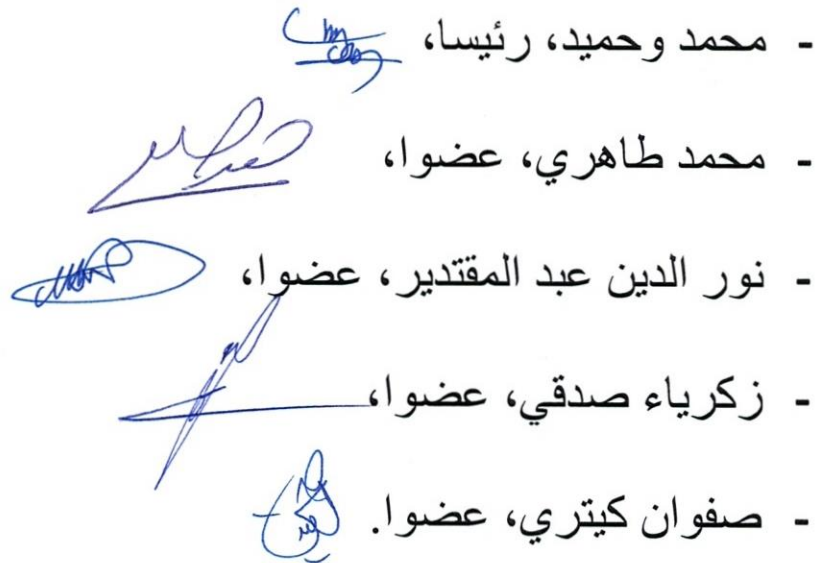 - محمد وحميد، رئيسا،
- محمد طاهري، عضوا،
- نور الدين عبد المقتدير، عضوا،
- زكرياء صدقي، عضوا،
- صفوان كيتري، عضوا.